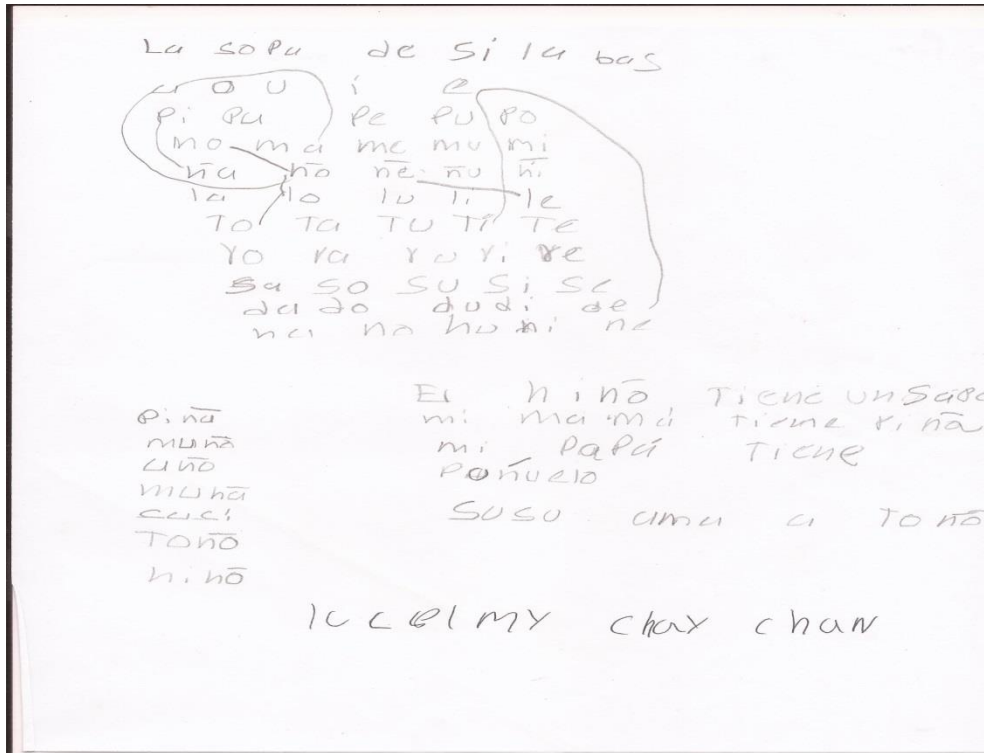 La sopa de si la bas
a o u i e
pi pa pe pu po
mo ma me mu mi
ña ño ñe ñu ñi
la lo lu li le
To Ta TU Ti Te
ro ra ru ri re
sa so su si se
da do du di de
na no nu ni ne
piña
muña
uño
muña
Toño
niño
El niño Tiene un sapo
mi mamá tiene piña
mi papá Tiene
pañuelo
SUSU ama a Toño
chay chan